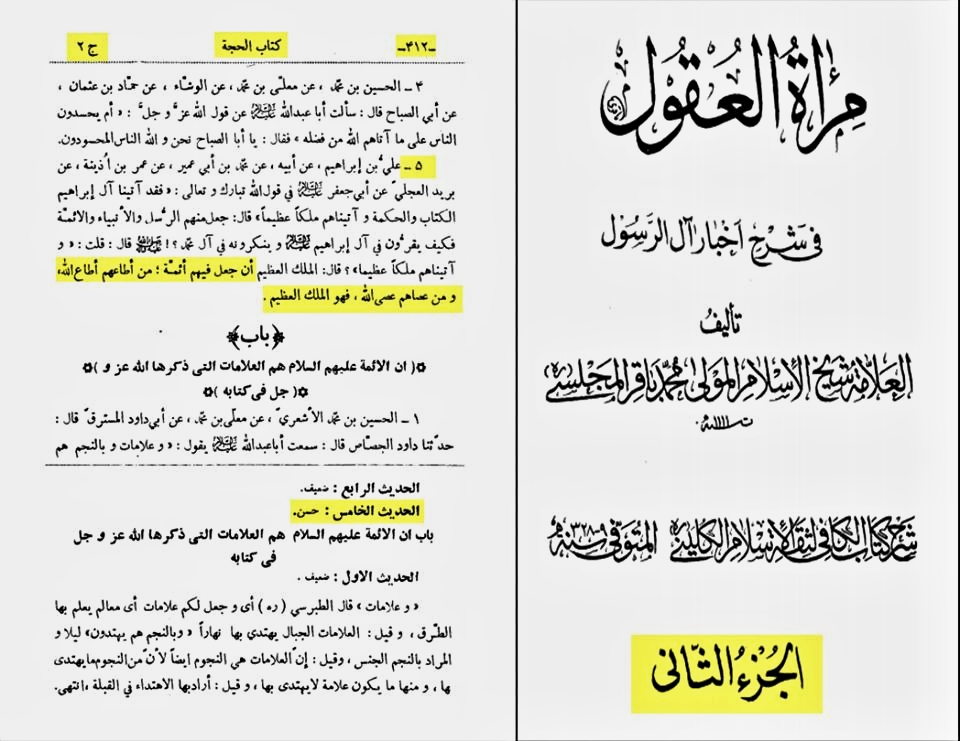 ج ٢ كتاب الحجة ـ٤١٢ـ
٤ ـ الحسين بن محمّد ، عن معلّى بن محمّد ، عن الوشّاء ، عن حمّاد بن عثمان ،
عن أبي الصباح قال : سألت أبا عبدالله عليه السلام عن قول الله عزّ و جلّ : « أم يحسدون
الناس على ما آتاهم الله من فضله » فقال : يا أبا الصباح نحن و الله الناس المحسودون.
٥ ـ عليّ بن إبراهيم ، عن أبيه ، عن محمّد بن أبي عمير ، عن عمر بن اُذينة ، عن
بريد العجليّ عن أبي جعفر عليه السلام في قول الله تبارك و تعالى : « فقد آتينا آل إبراهيم
الكتاب والحكمة و آتيناهم ملكاً عظيماً » قال: جعل منهم الرّسل والأنبياء والأئمّة
فكيف يقرّون في آل إبراهيم عليه السلام و ينكرونه في آل محمّد ؟! قال : قلت : « و
آتيناهم ملكاً عظيما » ؟ قال: الملك العظيم أن جعل فيهم أئمّة ؛ من أطاعهم أطاع الله،
و من عصاهم عصى الله ، فهو الملك العظيم .
﴿باب﴾
✿( ان الائمة عليهم السلام هم العلامات التى ذكرها الله عز و )✿
✿( جل فى كتابه )✿
١ ـ الحسين بن محمّد الأشعريّ ، عن معلّى بن محمّد ، عن أبي داود المسترقّ قال :
حدّثنا داود الجصّاص قال : سمعت أباعبدالله عليه السلام يقول : « و علامات و بالنجم هم
الحديث الرابع : ضعيف.
الحديث الخامس : حسن.
باب ان الائمة عليهم السلام هم العلامات التى ذكرها الله عز و جل
فى كتابه
الحديث الاول : ضعيف .
« و علامات » قال الطبرسي ( ره ) أى و جعل لكم علامات أى معالم يعلم بها
الطّرق ، و قيل : العلامات الجبال يهتدى بها نهاراً « وبالنجم هم يهتدون» ليلا و
المراد بالنجم الجنس ، وقيل : إنّ العلامات هي النجوم ايضاً لأنّ من النجوم ما يهتدى
بها ، و منها ما يكون علامة لايهتدى بها ، و قيل : أراد بها الاهتداء في القبلة ، انتهى.
مرآة العقول
فى شرح اخبار آل الرسول
تأليف
العلامة شيخ الإسلام المولى محمد باقر المجلسى
ت ١١١١ ه
شرح كتاب الكافى لثقة الإسلام الكلينى المتوفى سنة ٣٢٨-٩ ه
الجزء الثانى